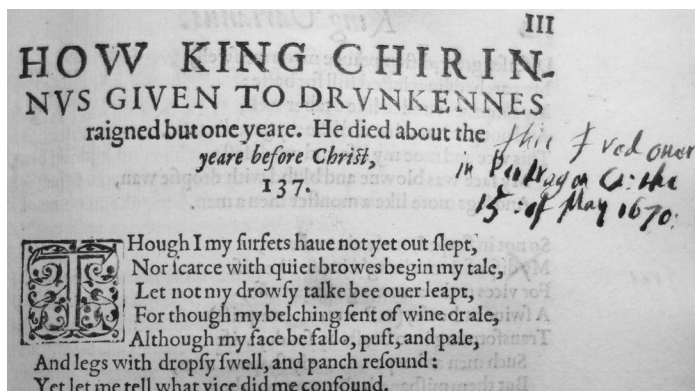 III
HOW KING CHIRIN-
NVS GIVEN TO DRVNKENNES
raigned but one yeare. He died about the
yeare before Chriſt,
137.
this I red ouer
in Pendragon Ca: the
15: of May 1670:
THough I my ſurfets haue not yet out ſlept,
Nor ſcarce with quiet browes begin my tale,
Let not my drowſy talke bee ouer leapt,
For though my belching ſent of wine or ale,
Although my face be fallo, puft, and pale,
And legs with dropſy ſwell, and panch reſound:
Yet let me tell what vice did me confound.